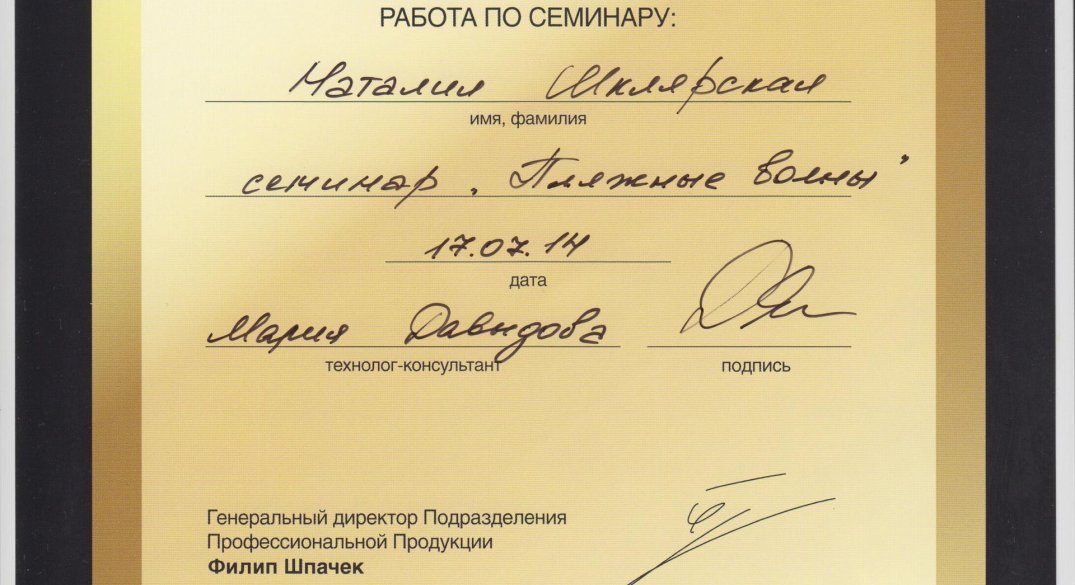 РАБОТА ПО СЕМИНАРУ:
Наталия Шклярская
имя, фамилия
семинар „Пляжные волны"
17.07.14
дата
Мария Давыдова
технолог-консультант
подпись
Генеральный директор Подразделения
Профессиональной Продукции
Филип Шпачек